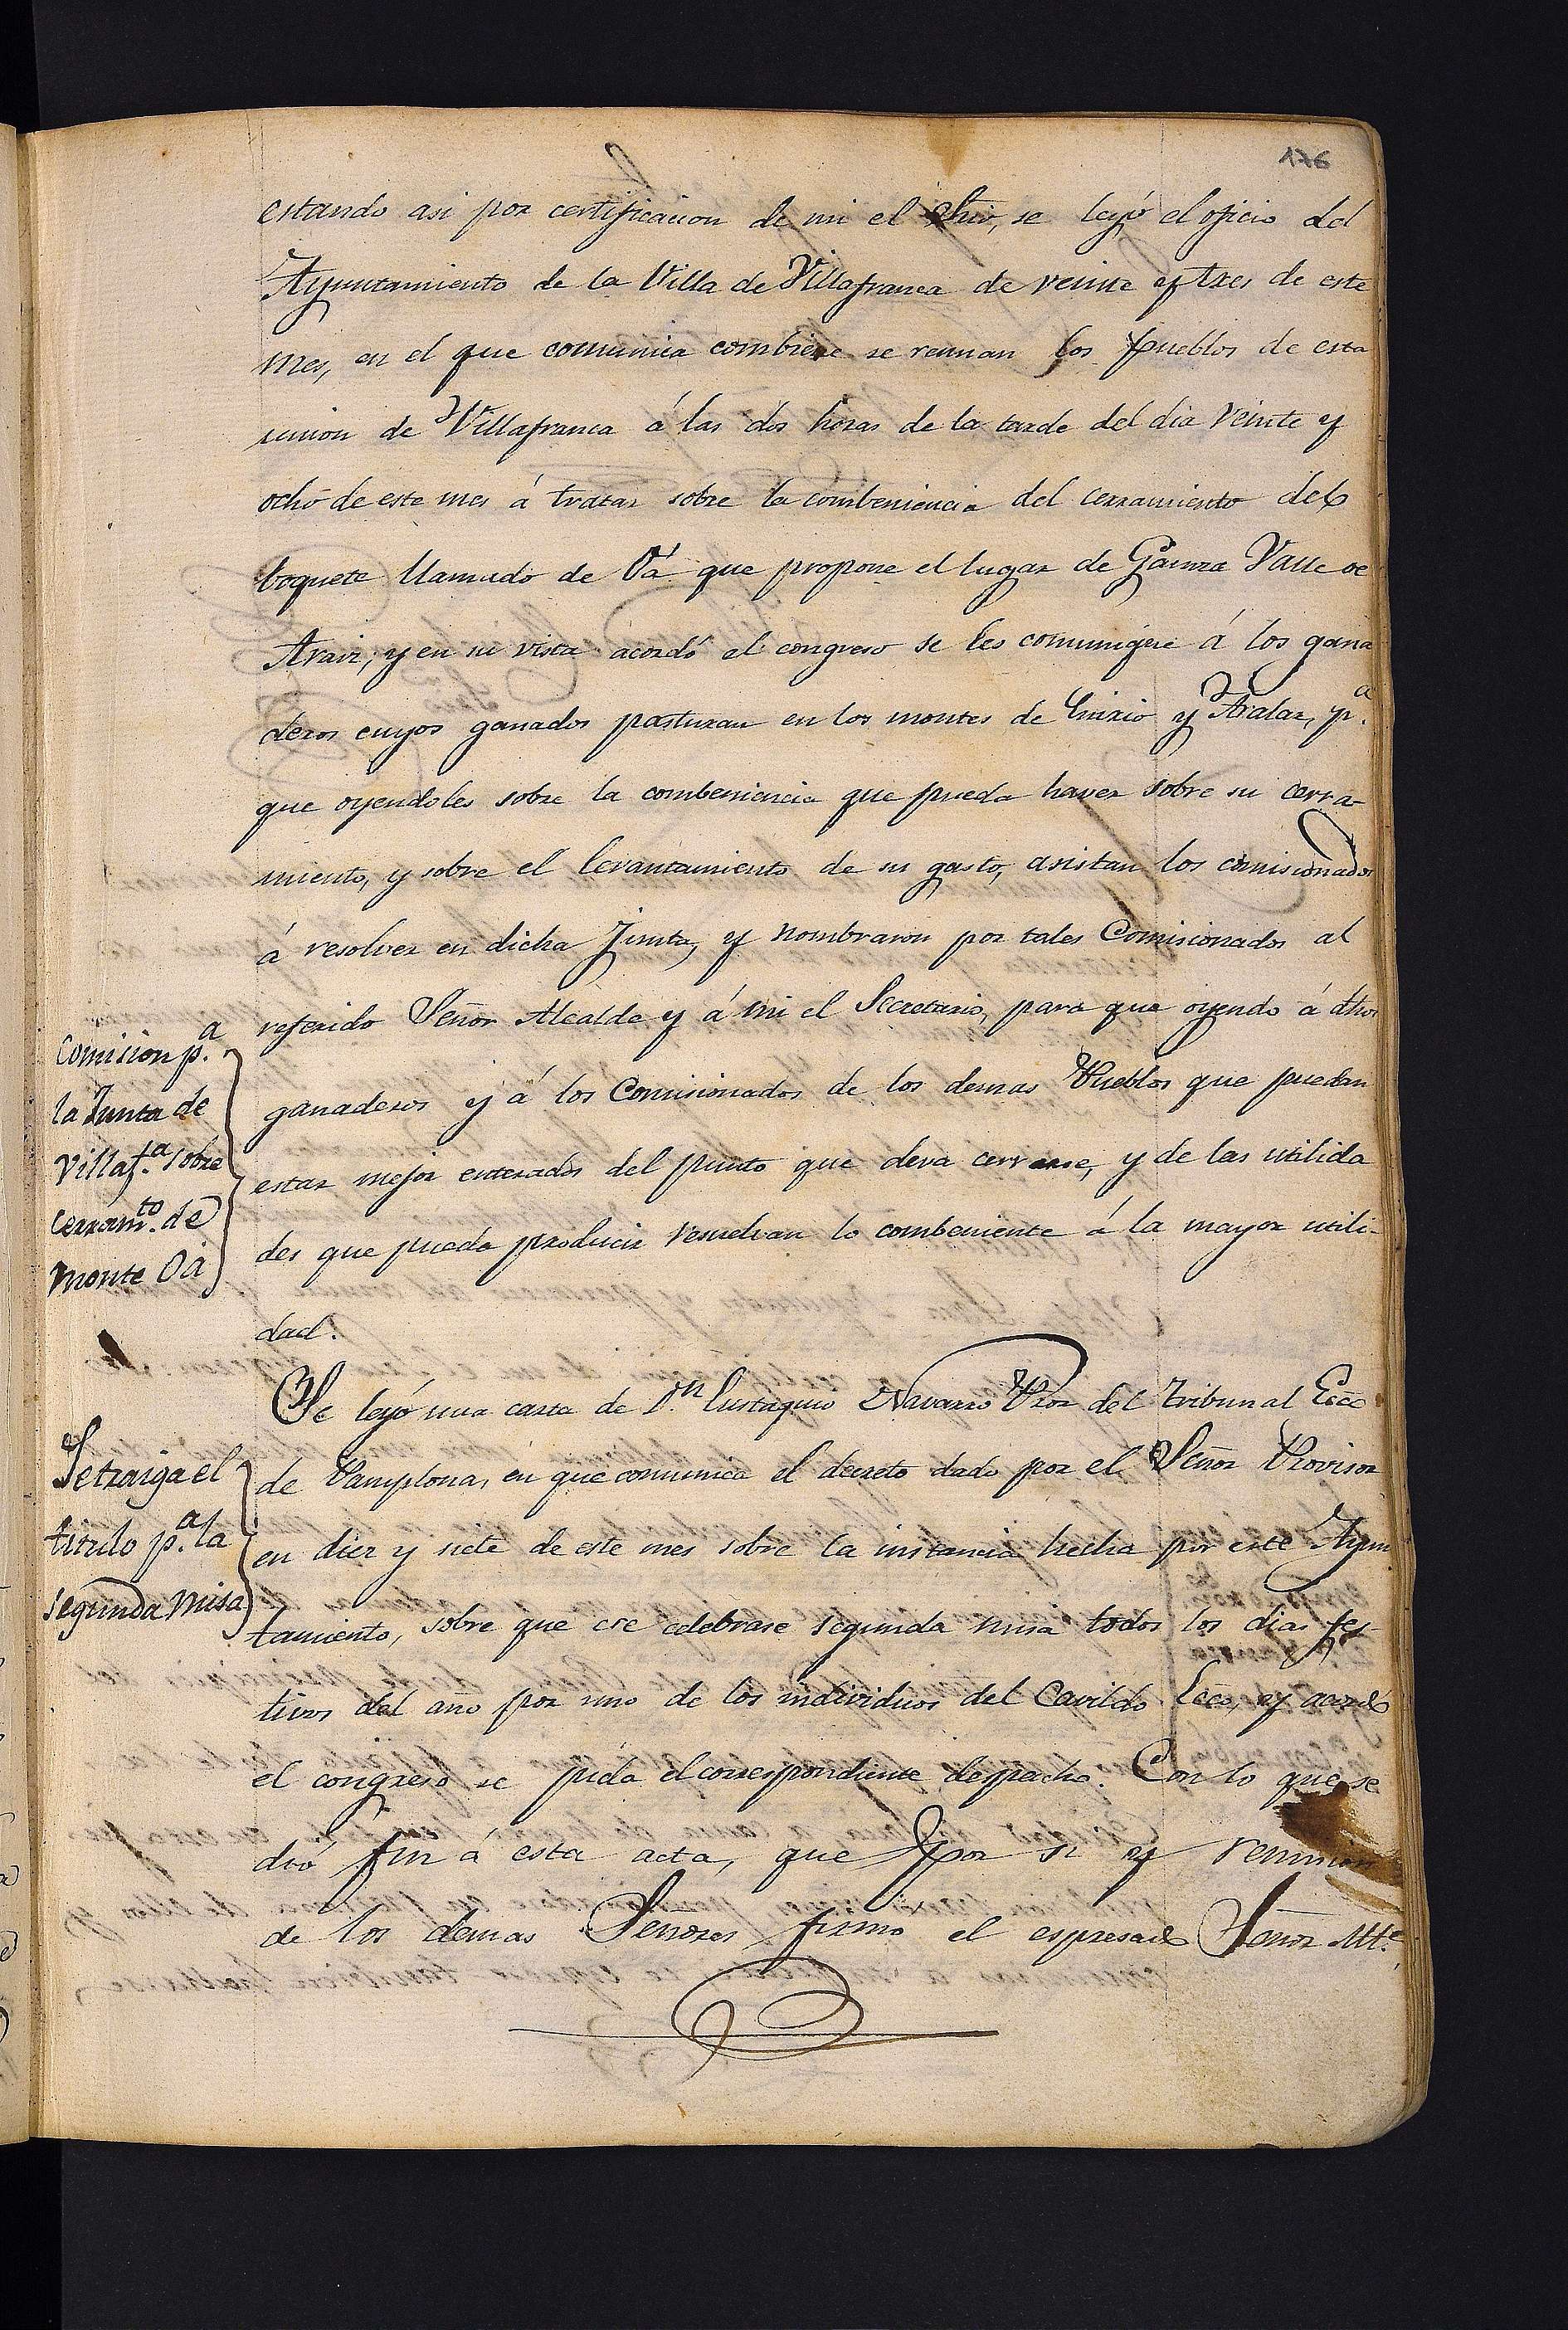 176
estando asi por certificacion de mi el Srio, se leyó el oficio del
Ayuntamiento de la Villa de Villafranca de veinte y tres de este
mes, en el que comunica combiene se reunan los Pueblos de esta
union de Villafranca á las dos horas de la tarde del dia veinte y
ocho de este mes á tratar sobre la combeniencia del cerramiento del
boquete llamado de Oá que propone el lugar de Gainza Valle de
Araiz; y en su vista acordó el congreso se les comunique á los gana
deros cuyos ganados pasturan en los montes de Enirio y Aralar, p.a
que oyendoles sobre la combeniencia que pueda haver sobre su cerra-
miento, y sobre el levantamiento de su gasto, asistan los comisionados
á resolver en dicha Junta, y nombraron por tales Comisionados al
referido Señor Alcalde y á mi el Secretario, para que oyendo á dhos
ganaderos y á los Comisionados de los demas Pueblos que puedan
estar mejor enterados del punto que deva cerrarse, y de las utilida
des que pueda producir resuelvan lo combeniente á la mayor utili-
dad.
Comision p.a
la Junta de
Villaf.a sobre
cerram.to de
monte Oá
Se leyó una carta de D.n Eustaquio Navarro Pror del Tribunal Ecco
de Pamplona, en que comunica el decreto dado por el Señor Provisor
en diez y siete de este mes sobre la instancia hecha por este Ayun
tamiento, sobre que se celebrase segunda misa todos los dias fes-
tivos del año por uno de los individuos del Cavildo Ecco, y acordó
el congreso se pida el correspondiente despacho. Con lo que se
dió fin á esta acta, que por si y reunion
de los demas Señores firmó el espresado Señor Alt.e
Se traiga el
titulo p.a la
segunda misa